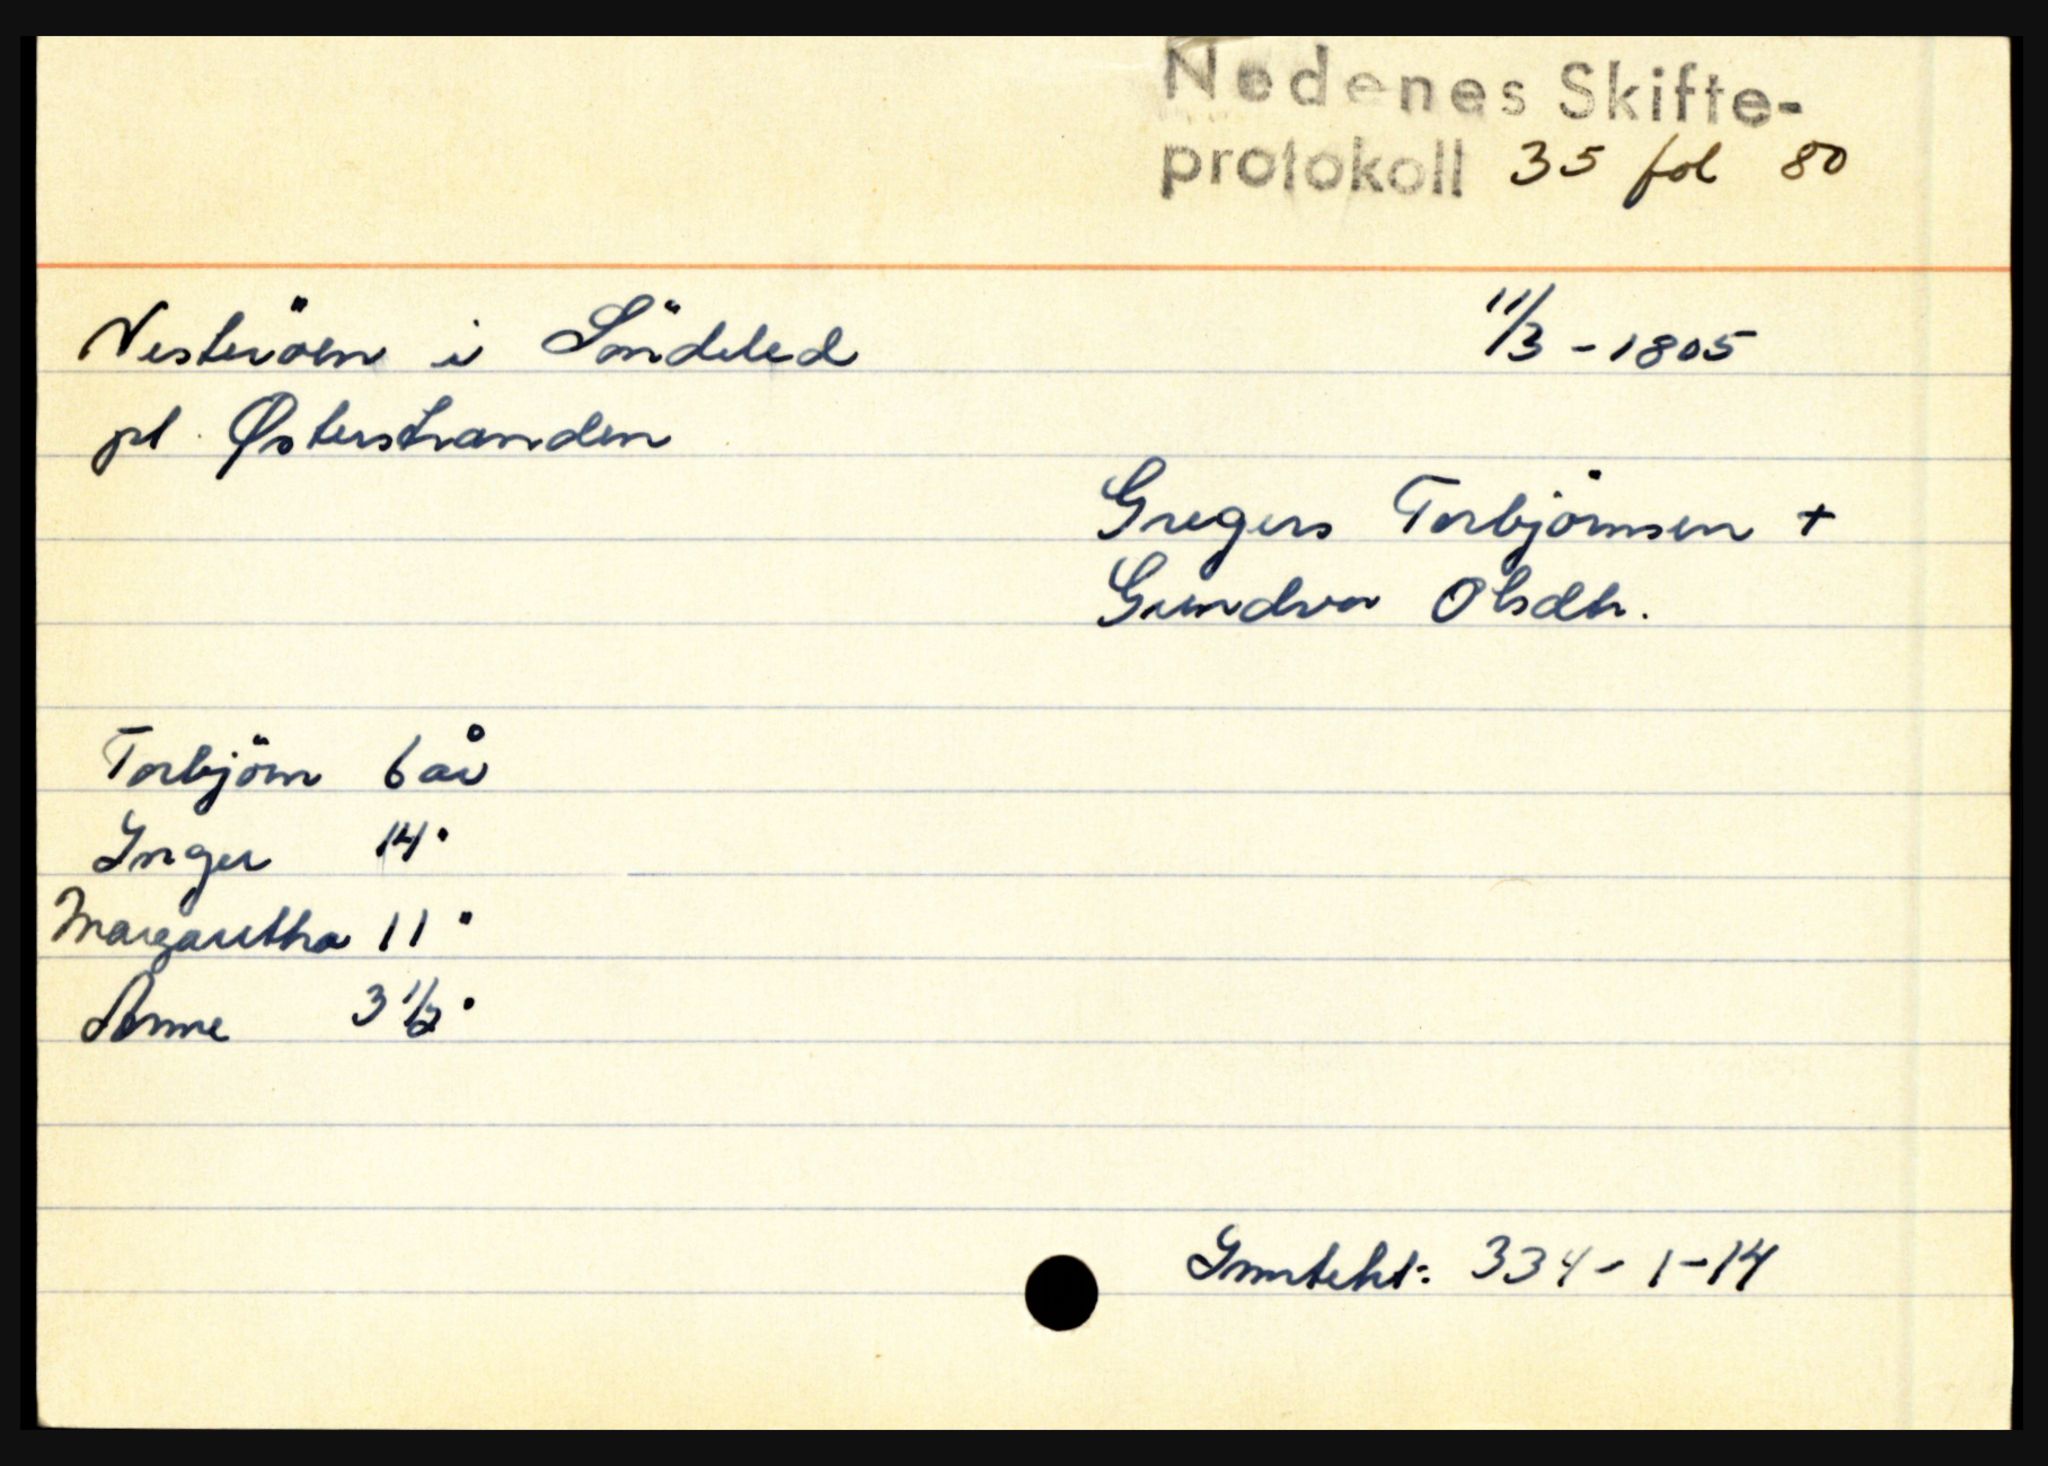 Nedenes Skifte-
protokoll 35 fol 80
Vesteröen i Söndeled 11/3 - 1805
pl. Østerstranden
Gregers Torbjörnsen +
Gundvor Olsdtr.
Torbjörn 6 år
Inger 14 "
Margaretha 11 "
Anne 3 1/2 "
Inntekt: 334 - 1 - 14